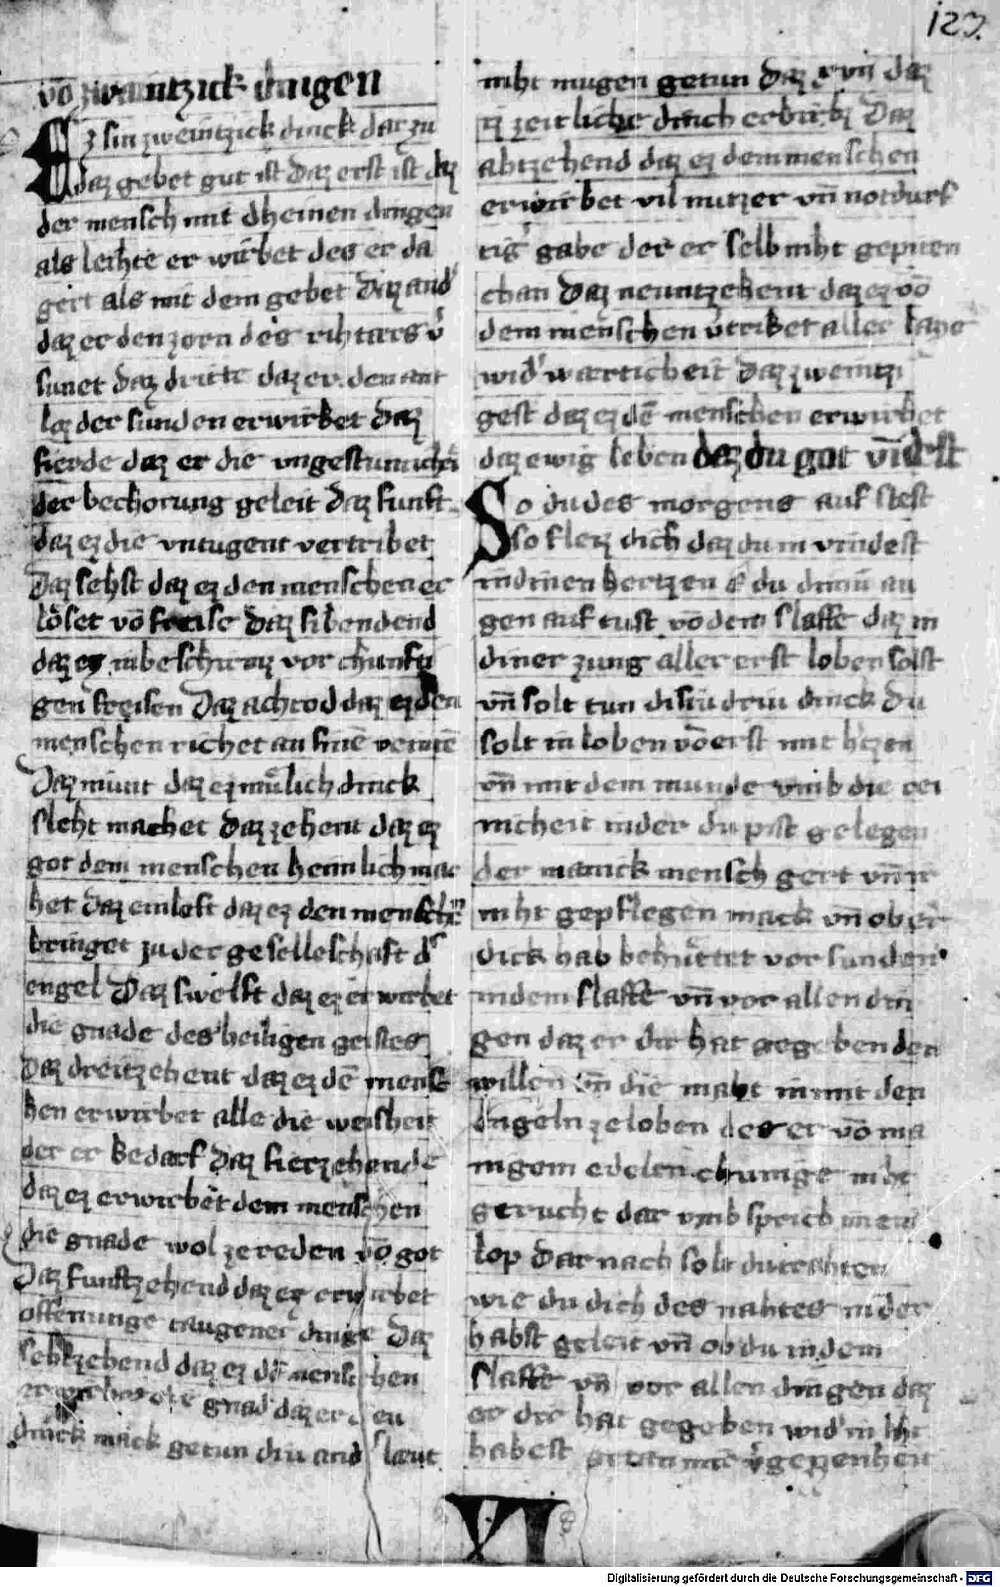 127.
võ zwaintzick dingen
Ez sin zweintzick dinck dar zu
daz gebet gut ist Daz erst ist daz
der mensch mit dheinen dingen
als leihte er wirbet des er da
gert als mit dem gebet Daz and'
daz er den zorn des rihtars v'
sunet Daz dritte daz er den ant
laz der sunden erwirbet Daz
fierde daz er die ungestumicheit
der bechorung geleit Daz funft
daz ez die untugent vertribet
Daz sehst daz ez den menschen er
löset võ freise Daz sibendend
daz ez in beschirmz vor chunfti
gen freisen Daz achtod daz ez den
menschen richet an sinē veintē
Daz niunt daz ez mulich dinck
sleht machet Daz zehent daz ez
got dem menschen heimlich mac
het Daz einleft daz ez den menschē
bringet zu der geselleschaft d's
engel Daz swelft daz ez er wirbet
die gnade des heiligen geistes
Daz dreitzehent daz ez dē mens
hen erwirbet alle die weisheit
der er bedarf Daz fierzehende
daz ez erwirbet dem menschen
die gnade wol ze reden võ got
Daz funftzehend daz ez erwirbet
offenunge taugener dinge Daz
sehtzehend daz ez dē menschen
gnad daz er
dinck mack getun diu and' laeut
niht mugen getun Daz
zeitliche dinch erbirbz Daz
ahtzehend daz ez dem menschen
erwirbet vil nutzer vñ notdurf
tig' gabe der er selb niht gepiten
chan Daz neuntzehent daz ez võ
dem menschen v'tribet aller laye
wid'waerticheit Daz zweintzi
gest daz ez dē menschen erwirbet
daz ewig leben daz du got vindest
So du des morgens auf stest
so fleiz dich daz du in vindest
in dinen hertzen e du diniu au
gen auf tust võ dem slaffe daz in
diner zung aller erst loben solst
vñ solt tun disiu driu dinck Du
solt in loben võ erst mit h'tzen
vñ mit dem munde umb die rei
nicheit in der du pist gelegen
der manick mensch gert vñ ir
niht gepflegen mack vñ ob er
dick hab behuttet vor sunden
in dem slaffe vñ vor allen din
gen daz er dir hat gegeben den
willen vñ die maht in mit den
engeln ze loben des er võ ma
nigem edelen chunige niht
gerucht dar umb sprich im ein
lop Dar nach solt du trahten
wie du dich des nahtes nider
habst geleit vñ ob du in dem
slaffe vñ vor allen dingen daz
er dir hat gegeben wid' in iht
habest v'gezzenheit
VI
Digitalisierung gefördert durch die Deutsche Forschungsgemeinschaft - DFG